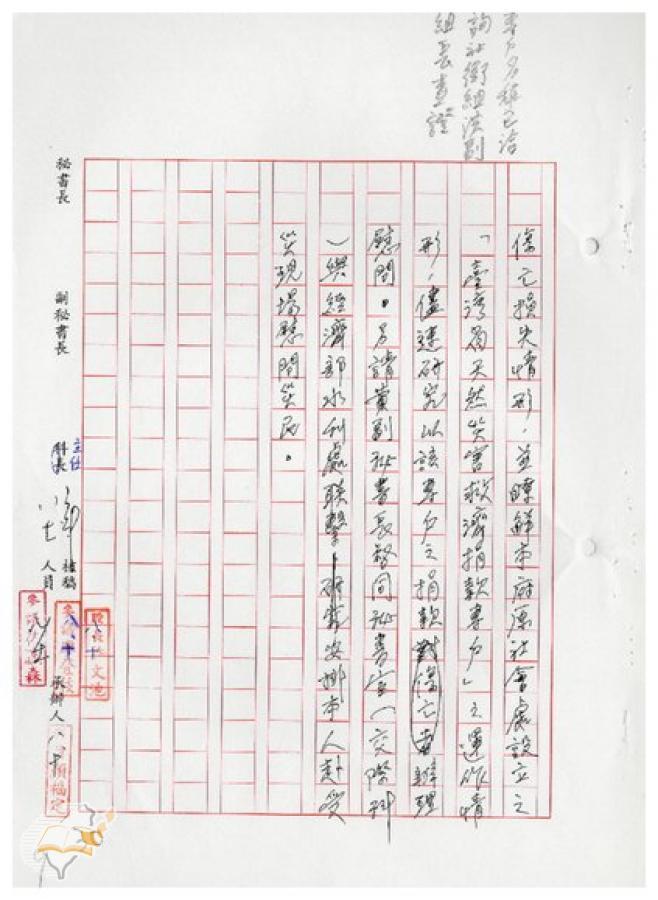 專戶名稱已洽
詢社衛組洪副
組長查證
傷亡損失情形,並瞭解本府原社會處設立之
「臺灣省天然災害救濟捐款專戶」之運作情
形,儘速研究以該專戶之捐款對傷亡者辦理
慰問。另請黃副秘書長督同秘書室(交際科
)與經濟部水利處聯繫,研究安排本人赴受
災現場慰問災民。
秘書長
副秘書長
主任
科長
核稿
人員
承辦人